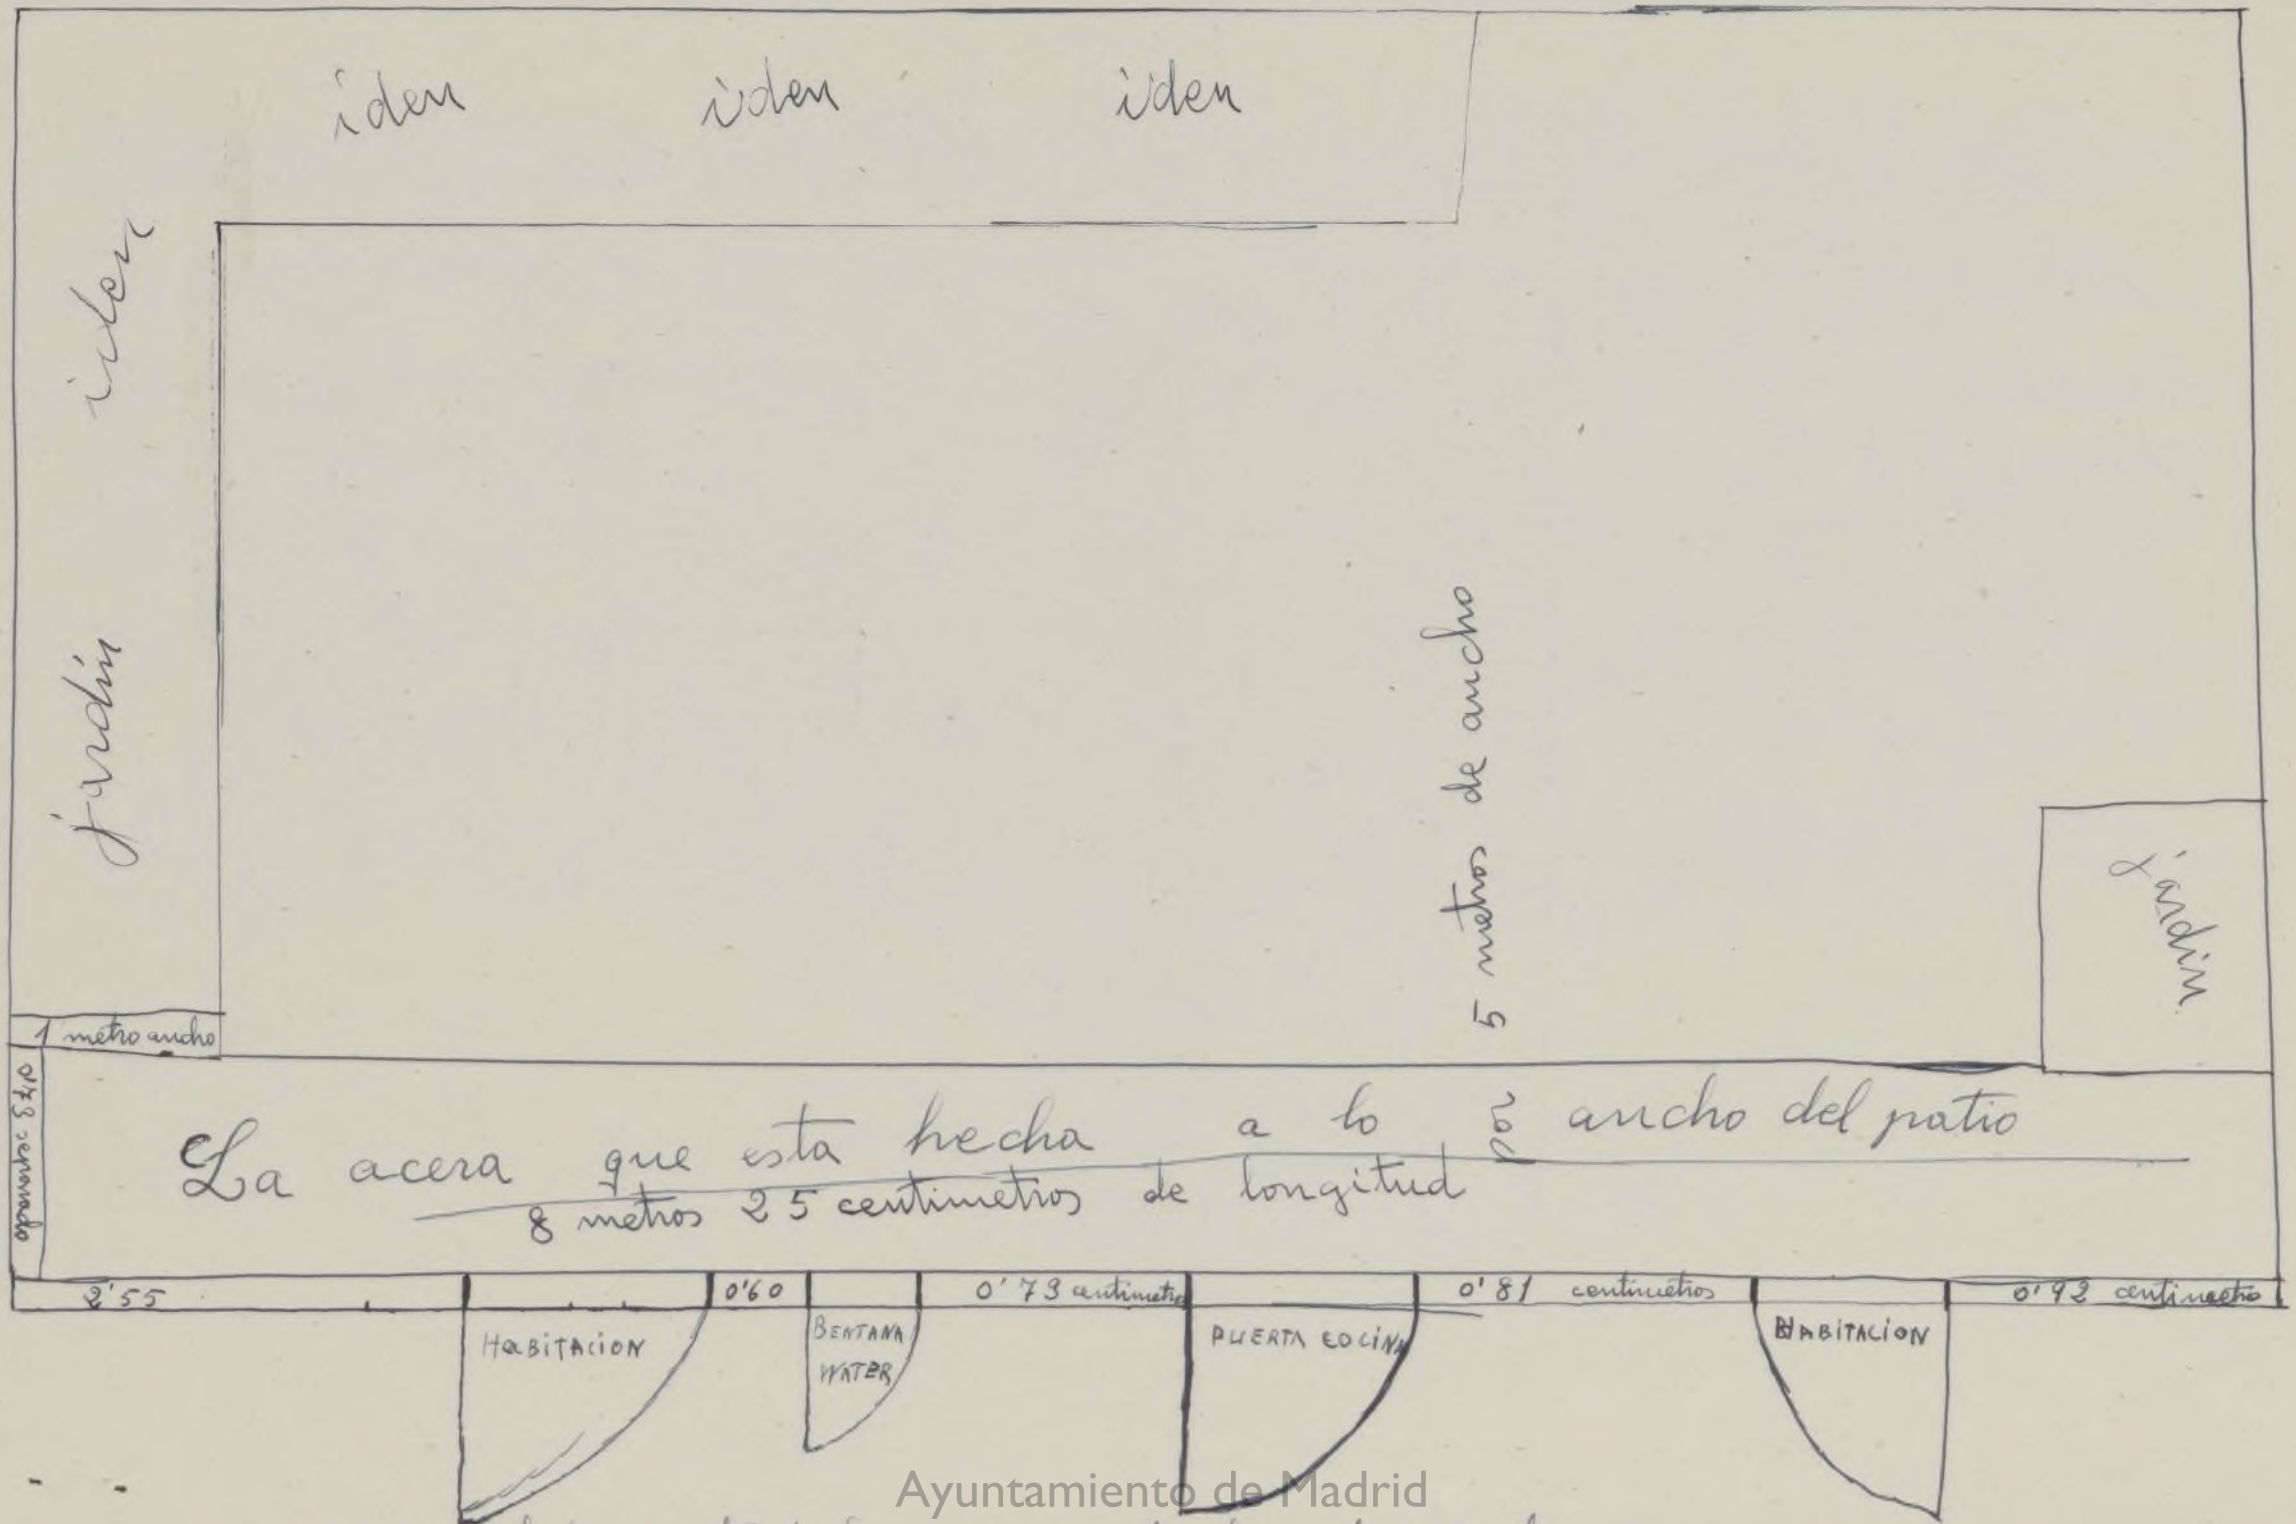 iden iden iden
iden
jardín
5 metros de ancho
jardin
1 metro ancho
La acera que esta hecha a lo ancho del patio
8 metros 25 centimetros de longitud por
2'55
0'60
0'73 centimetros
0'81 centimetros
0'92 centimetro
HaBiTACiON
BENTANA
WATER
PUERTA COCINA
HABiTACiON
Ayuntamiento de Madrid